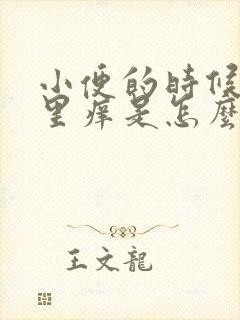 小便的時候
里癢是怎麼
王文龍